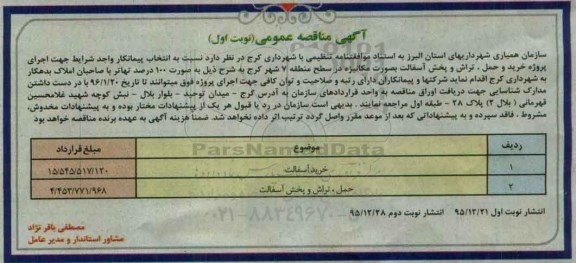 آگهی مناقصه عمومی(نوبت اول)
سازمان همیاری شهرداریهای استان البرز به استناد موافقتنامه تنظیمی با شهرداری کرج در نظر دارد نسبت به انتخاب پیمانکار واجد شرایط جهت اجرای
پروژه خرید و حمل ، تراش و پخش آسفالت بصورت مکانیزه در سطح منطقه ۷ شهر کرج به شرح ذیل به صورت ۱۰۰ درصد تهاتر با صاحبان املاک بدهکار
به شهرداری کرج اقدام نماید شرکتها و پیمانکاران دارای رتبه و صلاحیت و توان کافی جهت اجرای پروژه فوق میتوانند تا تاریخ ۹۶/۱/۲۰ با در دست داشتن
مدارک شناسایی جهت دریافت اوراق مناقصه به واحد قراردادهای سازمان به آدرس کرج - میدان توحید - بلوار بلال - نبش کوچه شهید غلامحسین
قهرمانی ( بلال ۲) پلاک ۲۸ - طبقه اول مراجعه نمایند . بدیهی است سازمان در رد یا قبول هر یک از پیشنهادات مختار بوده و به پیشنهادات مخدوش،
مشروط ، فاقد سپرده و به پیشنهاداتی که بعد از موعد مقرر واصل گردد ترتیب اثر داده نخواهد شد. ضمنا هزینه آگهی به عهده برنده مناقصه خواهد بود
ردیف موضوع مبلغ قرارداد
۱ خرید آسفالت ۱۵/۵۴۵/۵۱۷/۱۲۰
۲ حمل ، تراش و پخش آسفالت ۴/۴۵۳/۷۷۱/۹۶۸
انتشار نوبت اول ۹۵/۱۲/۲۱ انتشار نوبت دوم ۹۵/۱۲/۲۸
مصطفی باقر نژاد
مشاور استاندار و مدیر عامل
ParsNamadData
۰۲۱-۸۸۳۴۹۶۷۰